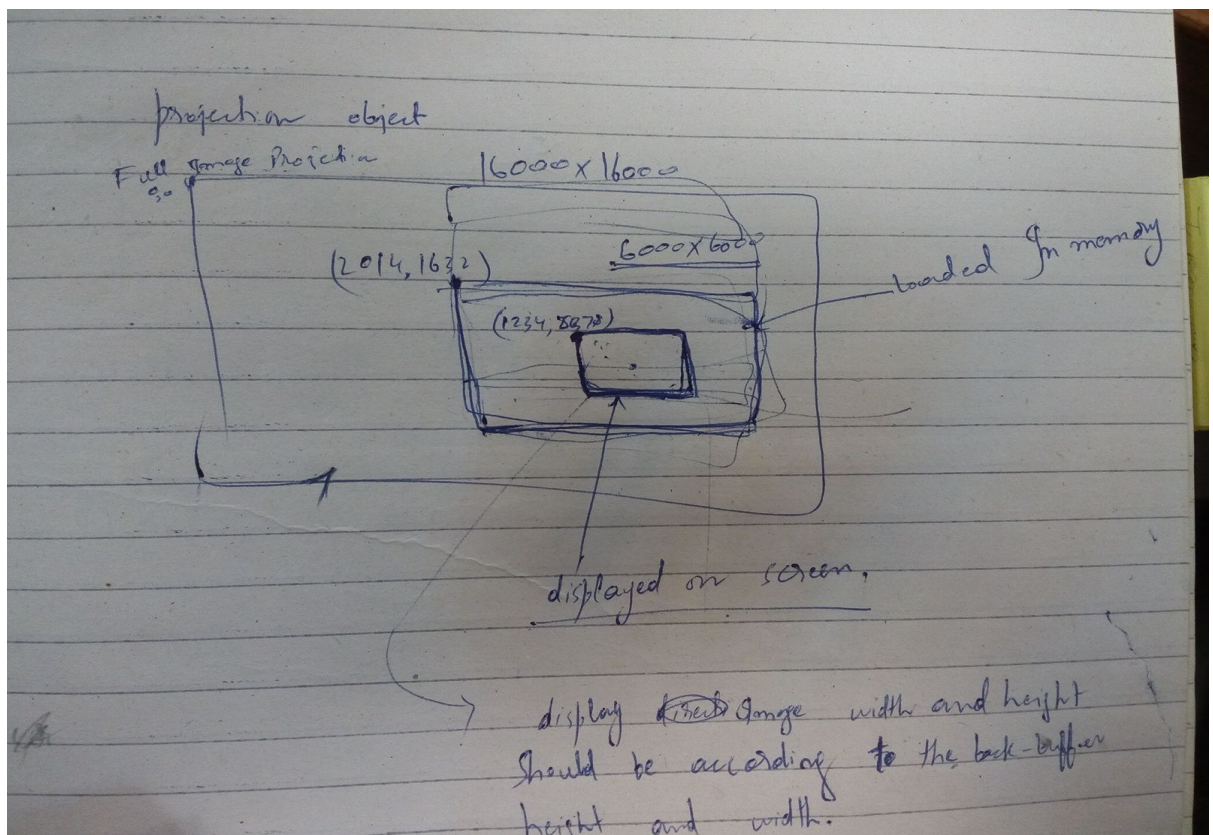 projection object
Full Image Projection
0,0
16000 x 16000
6000 x 6000
(2014, 1632)
loaded In memory
(1234, 8878)
displayed on screen.
display Image width and height
should be according to the back-buffer
height and width.